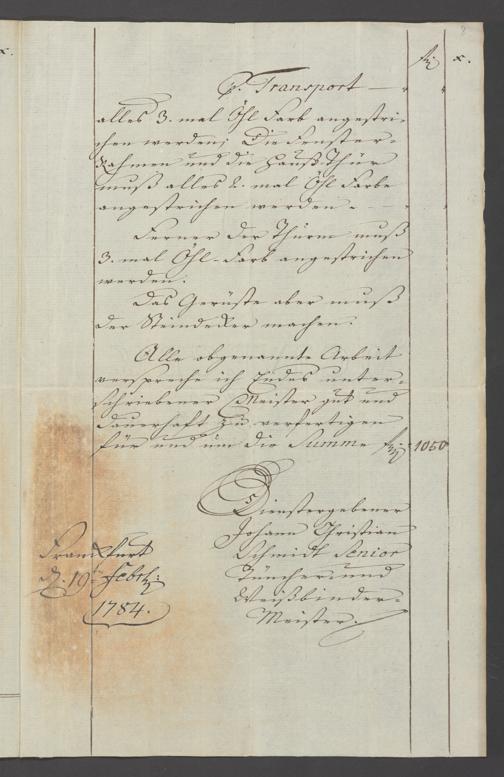 x.
fl. x.
P. Transport
alles 3. mal Öhl Farb angestri-
chen werden; Die Fenster-
Rahmen und die Hauß-Thür
muß alles 2. mal Öhl Farbe
angestrichen werden.
Ferner der Thurm muß
3. mal Öhl-Farb angestrichen
werden.
Das Gerüste aber muß
der Steindeker machen.
Alle obgenannte Arbeit
verspreche ich Endes unter-
schriebener Meister gut und
dauerhaft zu verfertigen
für und um die Summe fl. 1050
Dienstergebener
Johann Christian
Schmidt Senior
Tüncher und
Weißbinder-
Meister.
Frankfurt
d. 19. Febr:
1784.